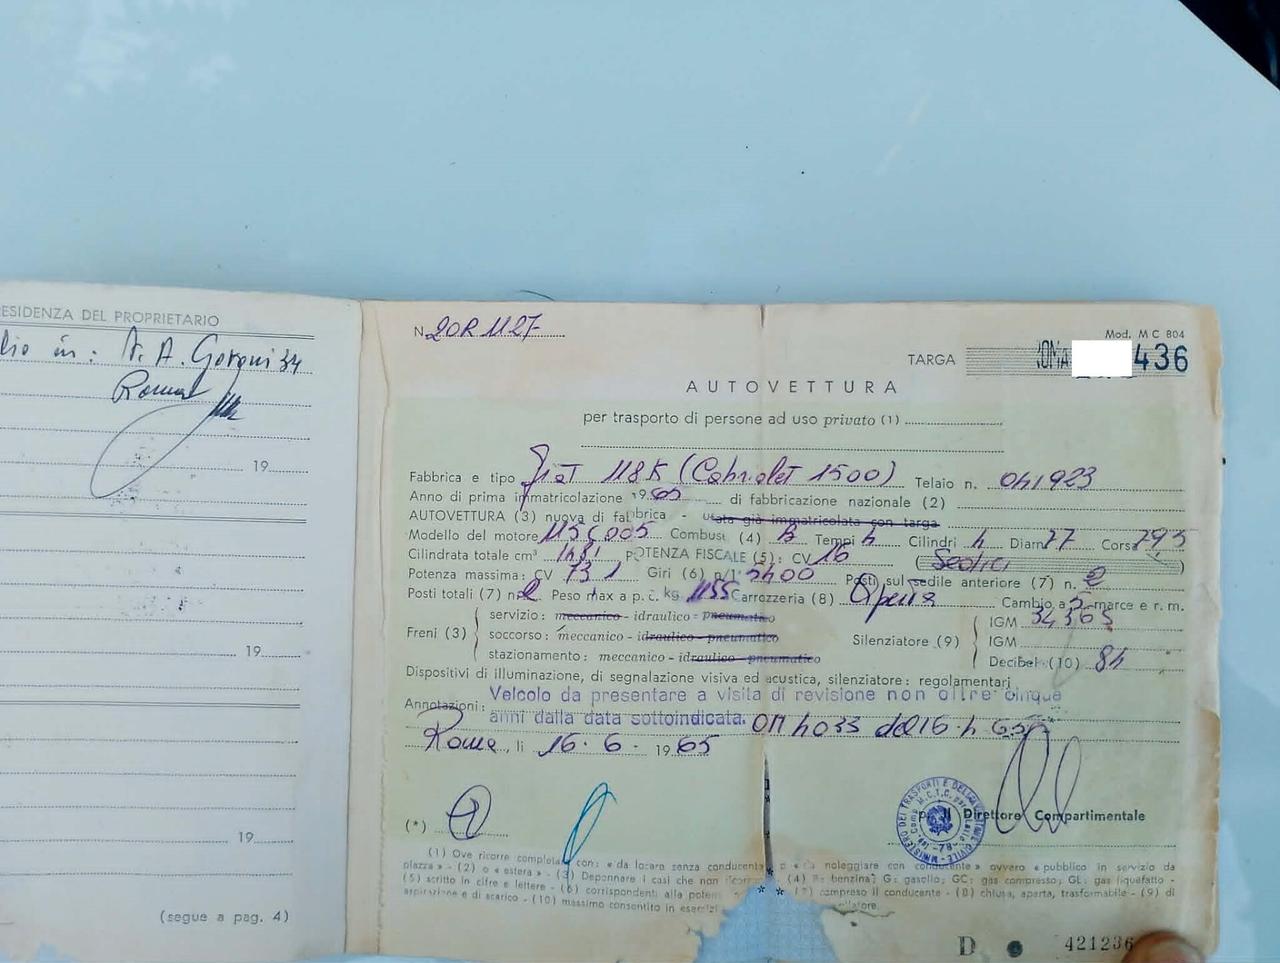 RESIDENZA DEL PROPRIETARIO
in: V. A. Gorgni 34
Roma
19
19
19
(segue a pag. 4)
N. 20R 1127
Mod. M C 804
TARGA ROMA 436
AUTOVETTURA
per trasporto di persone ad uso privato (1)
Fabbrica e tipo Fiat 118K (Cabriolet 1500) Telaio n. 041923
Anno di prima immatricolazione 1965 di fabbricazione nazionale (2)
AUTOVETTURA (3) nuova di fabbrica - usata già immatricolata con targa
Modello del motore 115C005 Combust (4) B Tempi 4 Cilindri 4 Diam 77 Corsa 79,5
Cilindrata totale cm³ 1481 POTENZA FISCALE (5): CV 16 (Sedici)
Potenza massima: CV 73 Giri (6) n/1' 5400 Posti sul sedile anteriore (7) n. 2
Posti totali (7) n. 2 Peso max a p. c. kg 1155 Carrozzeria (8) Aperta Cambio a 5 marce e r. m.
Freni (3) servizio: meccanico - idraulico - pneumatico
soccorso: meccanico - idraulico - pneumatico
stazionamento: meccanico - idraulico - pneumatico
Silenziatore (9) IGM 34365
IGM
Decibel (10) 84
Dispositivi di illuminazione, di segnalazione visiva ed acustica, silenziatore: regolamentari
Annotazioni: Veicolo da presentare a visita di revisione non oltre cinque
anni dalla data sottoindicata. OM 4033 del 16-4-65
Roma, li 16-6-1965
p. Il Direttore Compartimentale
(*)
(1) Ove ricorre completare con: « da locare senza conducente » « da noleggiare con conducente » ovvero « pubblico in servizio da
piazza » - (2) o « estera » - (3) Depennare i casi che non - (4) B: benzina; G: gasolio; GC: gas compresso; GL: gas liquefatto -
(5) scritto in cifre e lettere - (6) corrispondenti alla - (7) compreso il conducente - (8) chiusa, aperta, trasformabile - (9) di
aspirazione e di scarico - (10) massimo consentito in
D 421236